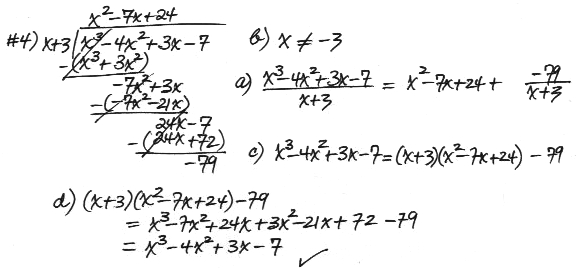 x²-7x+24
#4) x+3 x³-4x²+3x-7 b) x ≠ -3
-(x³+3x²)
-7x²+3x
-(-7x²-21x)
24x-7
-(24x+72)
-79
a) x³-4x²+3x-7 / x+3 = x²-7x+24 + -79 / x+3
c) x³-4x²+3x-7=(x+3)(x²-7x+24) - 79
d) (x+3)(x²-7x+24)-79
= x³-7x²+24x+3x²-21x+72-79
= x³-4x²+3x-7 ✓